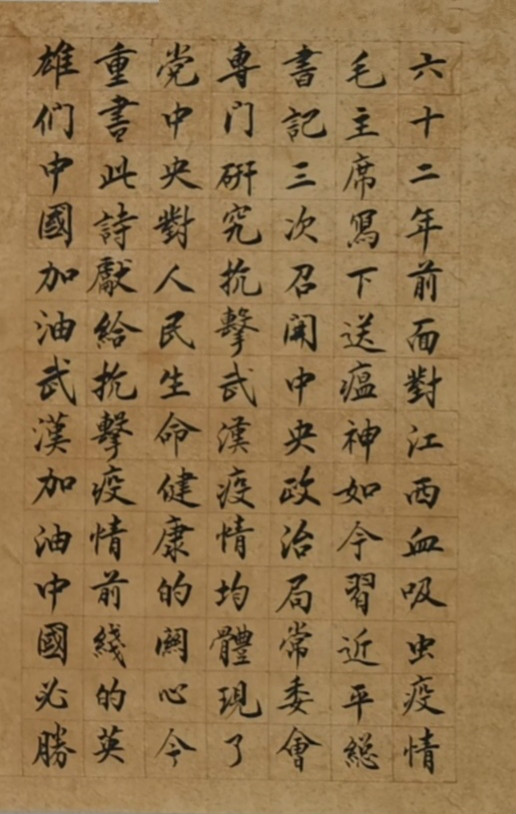 六十二年前面對江西血吸虫疫情
毛主席寫下送瘟神如今習近平総
書記三次召開中央政治局常委會
專门研究抗擊武漢疫情均體現了
党中央對人民生命健康的關心今
重書此詩獻給抗擊疫情前綫的英
雄们中國加油武漢加油中國必勝